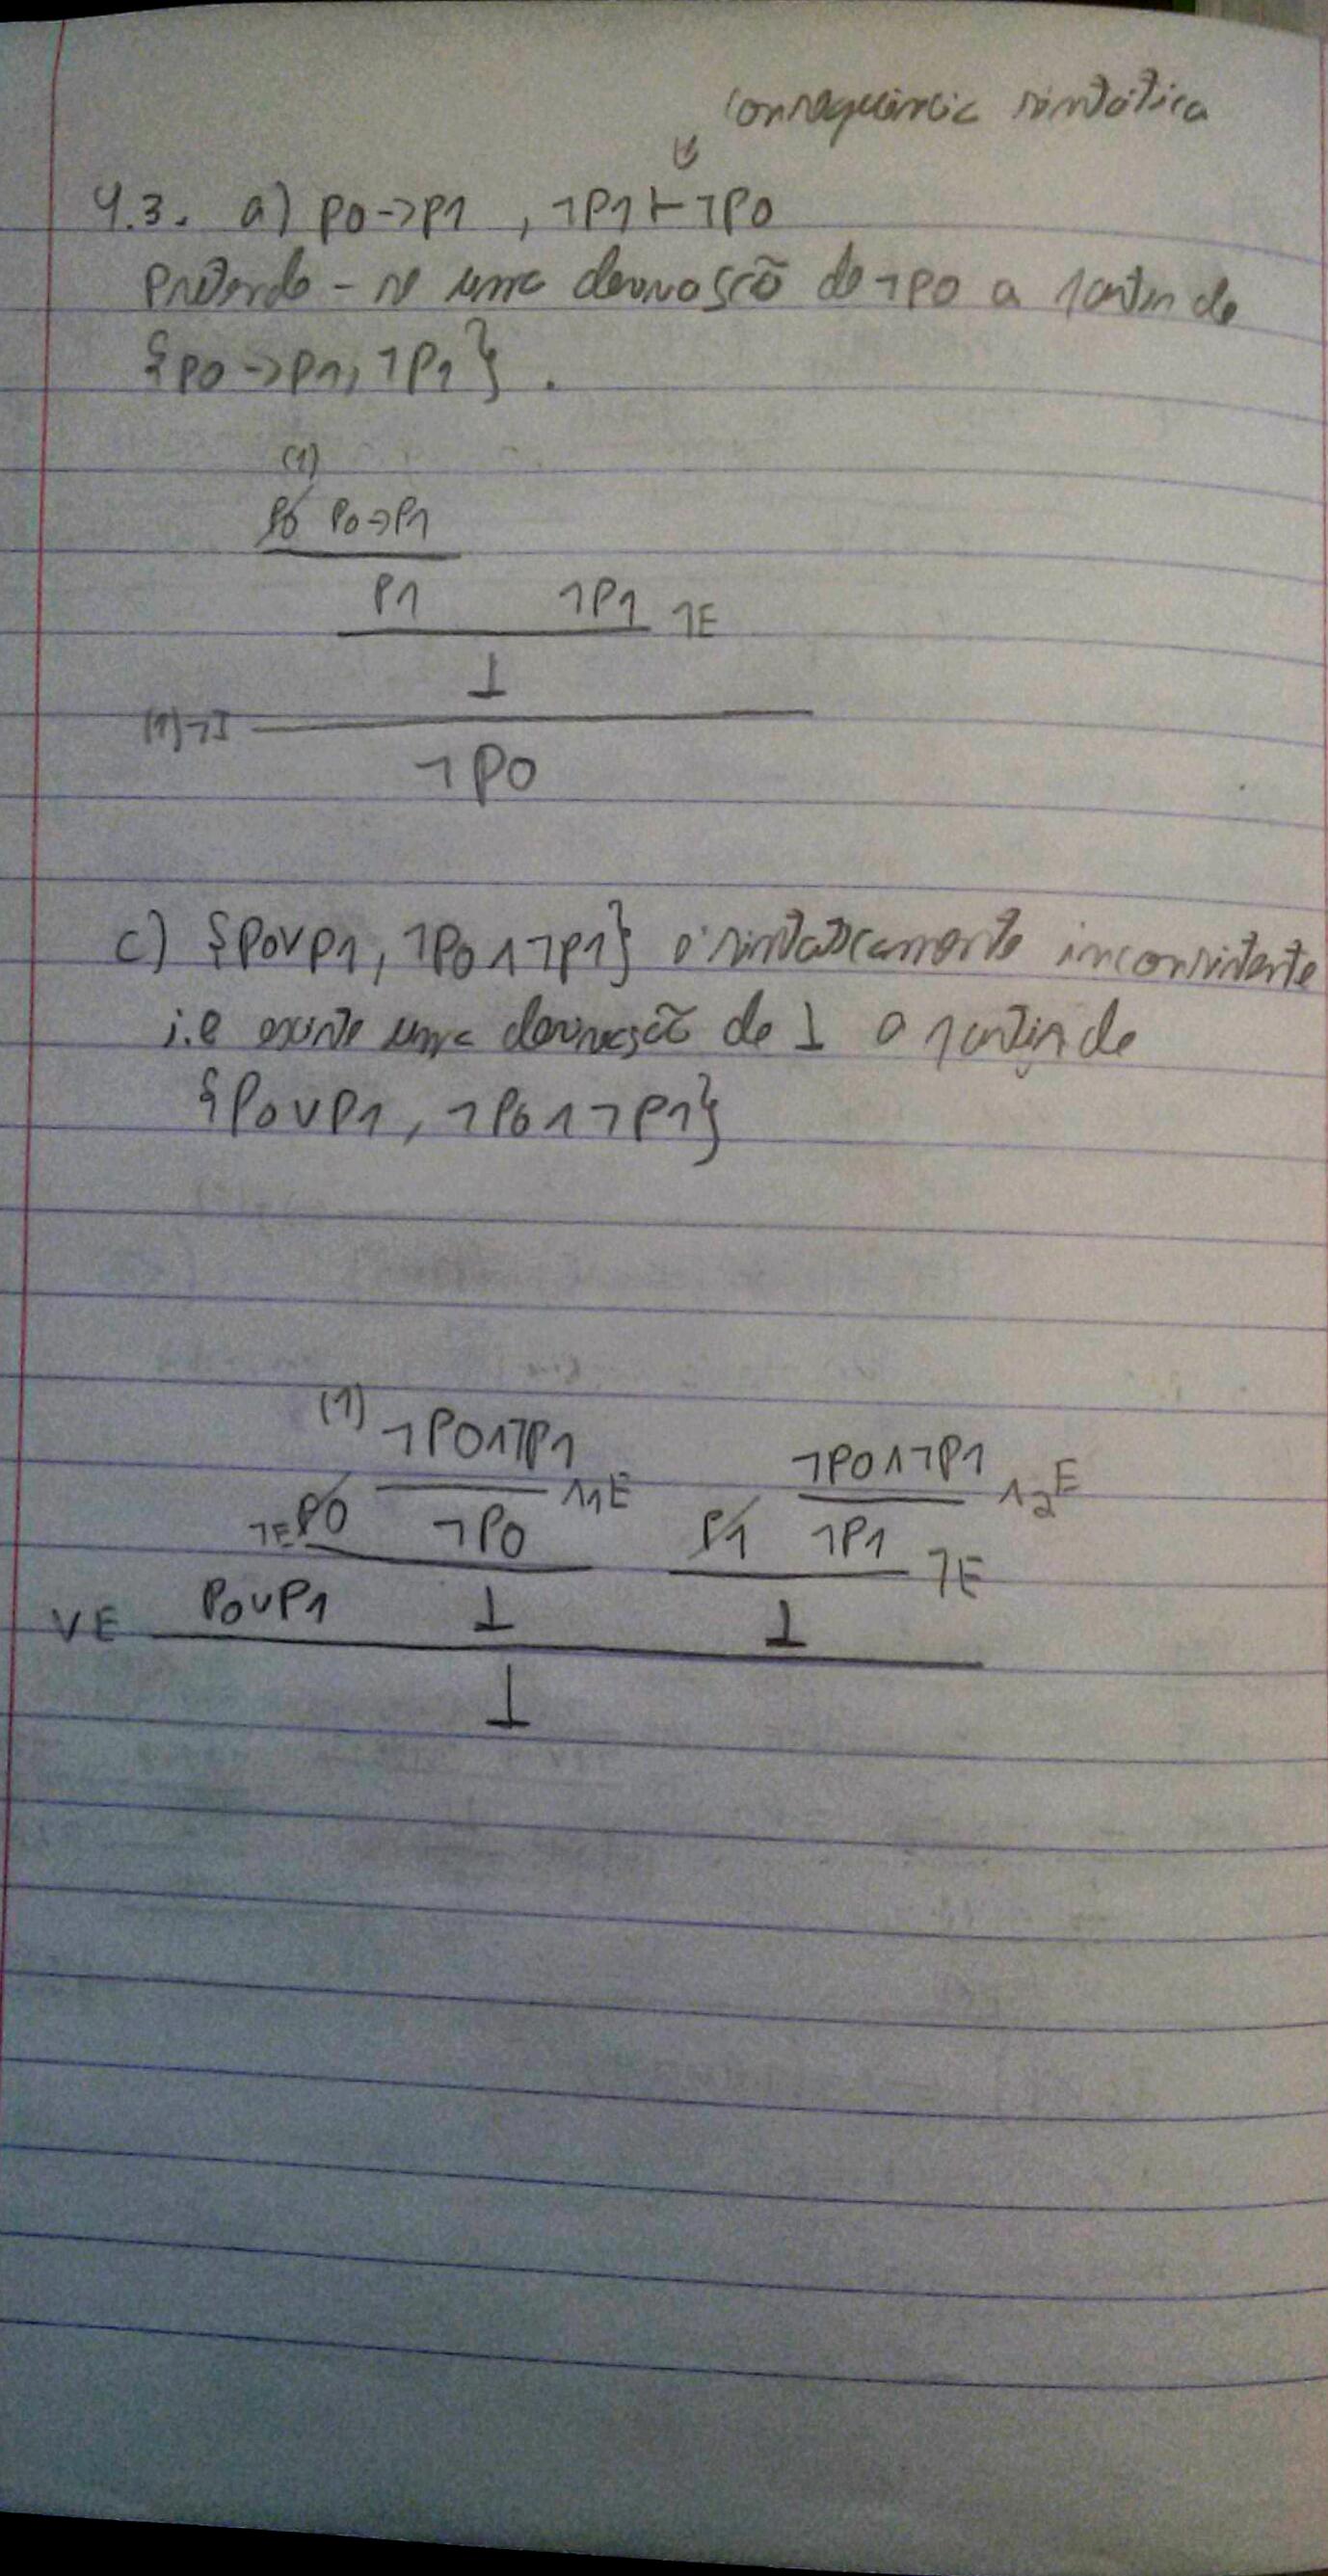 consequência sintática
4.3. a) p0->p1 , ¬p1 ⊢ ¬p0
Pretende-se uma derivação de ¬p0 a partir de
{p0->p1, ¬p1} .
(1)
p0 p0->p1
p1 ¬p1 ¬E
⊥
(1)¬I
¬p0
c) {p0∨p1, ¬p0∧¬p1} é sintaticamente inconsistente
i.e existe uma derivação de ⊥ a partir de
{p0∨p1, ¬p0∧¬p1}
(1) ¬p0∧¬p1 ¬p0∧¬p1
∧1E ∧2E
¬E p0 ¬p0 p1 ¬p1 ¬E
∨E p0∨p1 ⊥ ⊥
⊥